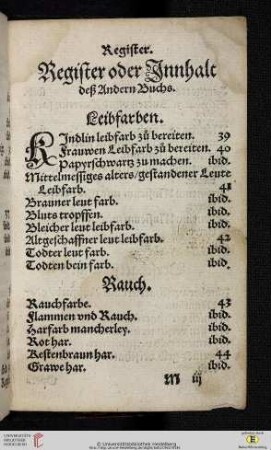 Register.
Register oder Jnnhalt
deß Andern Buchs.
Leibfarben.
KJndlin leibfarb zů bereiten. 39
Frauwen Leibfarb zů bereiten. 40
Papyrschwartz zu machen. ibid.
Mittelmessiges alters/gestandener Leute
Leibfarb. 41
Brauner leut farb. ibid.
Bluts tropffen. ibid.
Bleicher leut leibfarb. ibid.
Altgeschaffner leut leibfarb. 42
Todter leut farb. ibid.
Todten bein farb. ibid.
Rauch.
Rauchfarbe. 43
Flammen vnd Rauch. ibid.
Harfarb mancherley. ibid.
Rot har. ibid.
Kestenbraun har. 44
Grawe har. ibid.
M iij
© Universitätsbibliothek Heidelberg